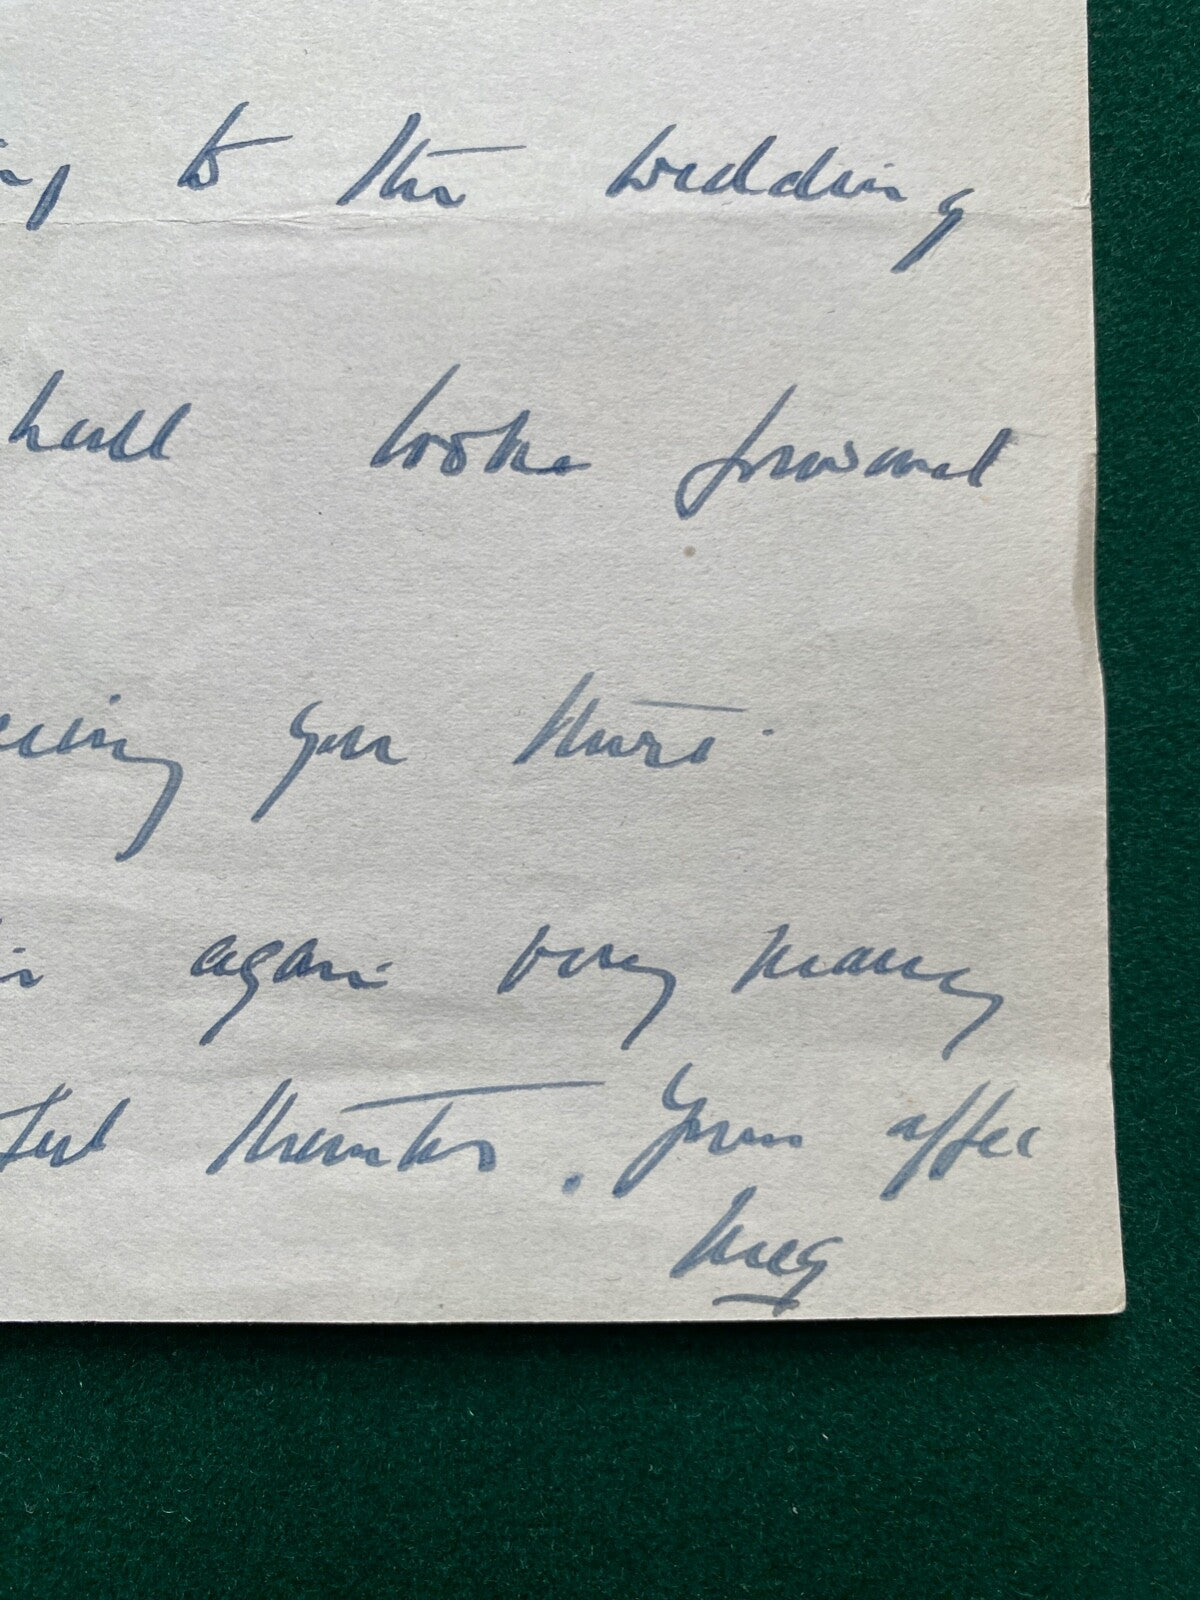 to the wedding
hall look forward
eeing you there.
again very many
thanks. Yours affec
Meg